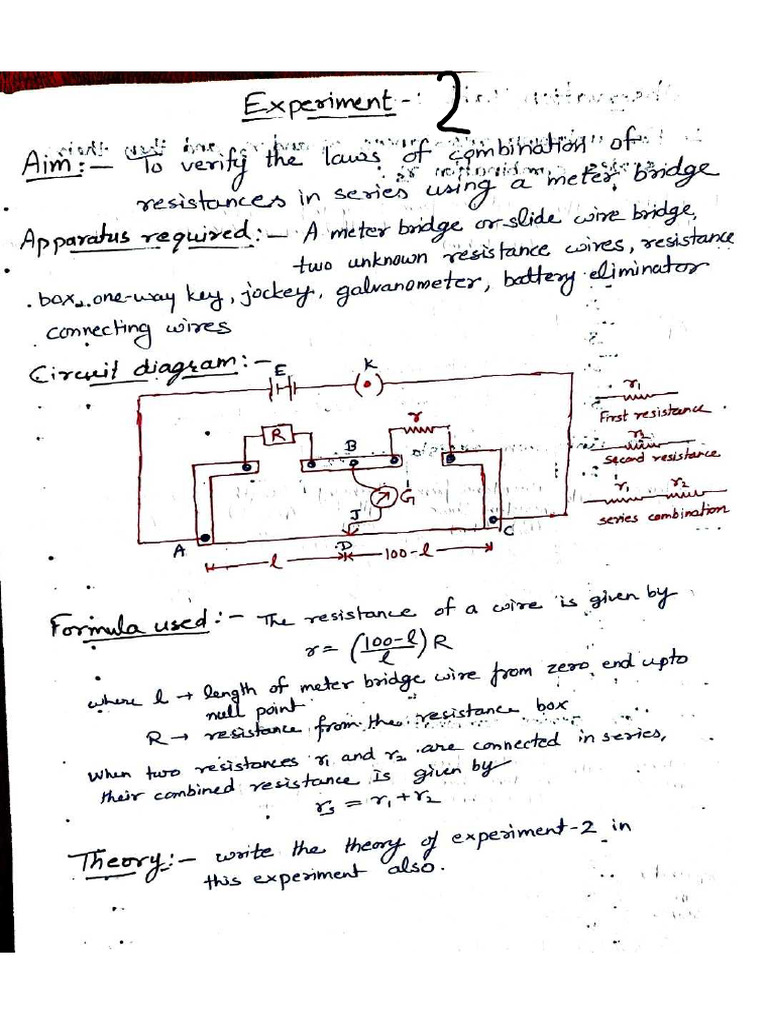 Experiment-: 2
Aim:- To verify the laws of combination of
resistances in series using a meter bridge
Apparatus required:- A meter bridge or slide wire bridge,
two unknown resistance wires, resistance
box, one-way key, jockey, galvanometer, battery eliminator
connecting wires
Circuit diagram:-
E
K
R
r
B
G
J
A
D
C
l
100-l
r1
First resistance
r2
second resistance
r1 r2
series combination
Formula used:- The resistance of a wire is given by
r = (100-l/l) R
where l → length of meter bridge wire from zero end upto
null point
R → resistance from the resistance box
When two resistances r1 and r2 are connected in series,
their combined resistance is given by
rs = r1 + r2
Theory:- write the theory of experiment-2 in
this experiment also.